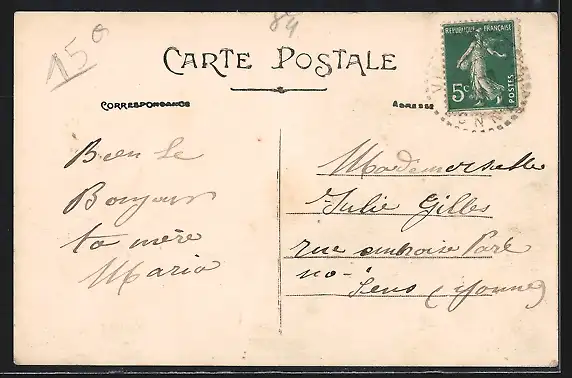 15
84
CARTE POSTALE
REPUBLIQUE FRANÇAISE
5c
POSTES
CORRESPONDANCE
ADRESSE
Bien le
Bonjour
ta mère
Maria
Mademoiselle
Julie Gilles
rue ambroise Paré
no-
Sens (Yonne)